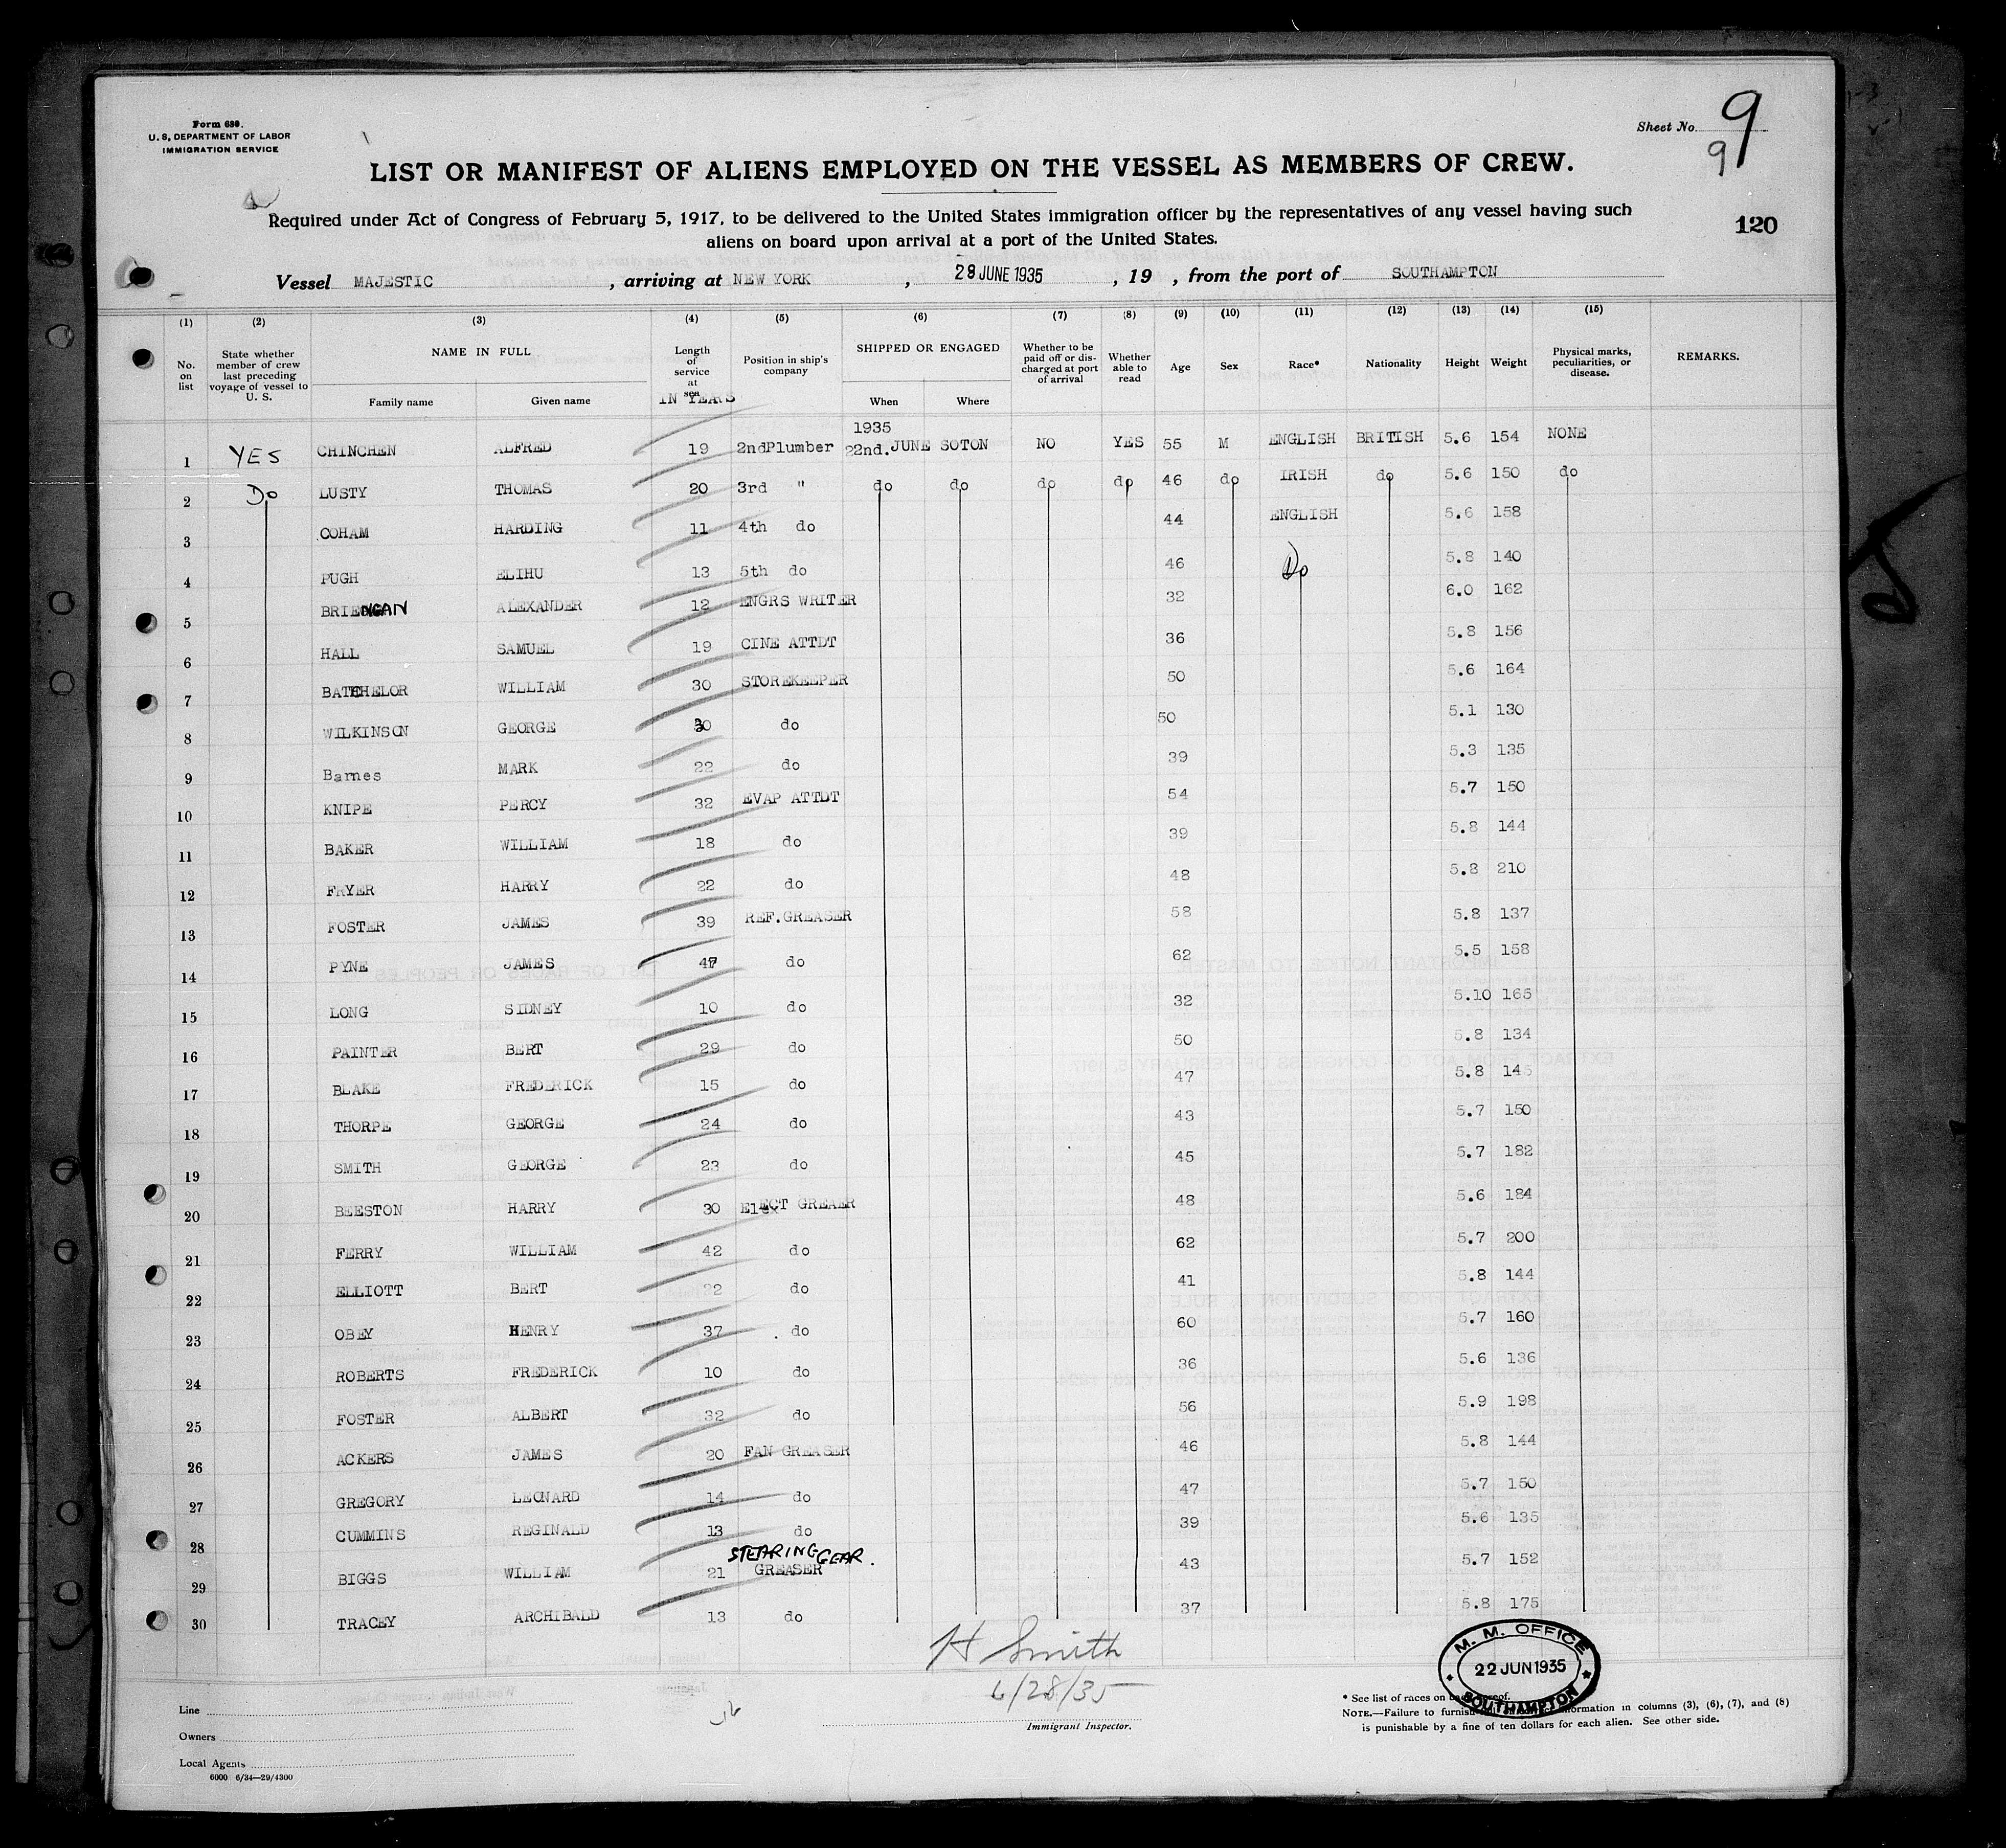 Form 630.
U. S. DEPARTMENT OF LABOR
IMMIGRATION SERVICE
Sheet No. 9
9
LIST OR MANIFEST OF ALIENS EMPLOYED ON THE VESSEL AS MEMBERS OF CREW.
Required under Act of Congress of February 5, 1917, to be delivered to the United States immigration officer by the representatives of any vessel having such
aliens on board upon arrival at a port of the United States.
120
Vessel MAJESTIC, arriving at NEW YORK, 28 JUNE 1935, 19 , from the port of SOUTHAMPTON
(1) (2) (3) (4) (5) (6) (7) (8) (9) (10) (11) (12) (13) (14) (15)
No. on list State whether member of crew last preceding voyage of vessel to U. S. NAME IN FULL Family name Given name Length of service at sea IN YEARS Position in ship's company SHIPPED OR ENGAGED When Where Whether to be paid off or discharged at port of arrival Whether able to read Age Sex Race* Nationality Height Weight Physical marks, peculiarities, or disease. REMARKS.
1935
1 YES CHINCHEN ALFRED 19 2ndPlumber 22nd.JUNE SOTON NO YES 55 M ENGLISH BRITISH 5.6 154 NONE
2 Do LUSTY THOMAS 20 3rd " do do do do 46 do IRISH do 5.6 150 do
3 COHAM HARDING 11 4th do 44 ENGLISH 5.6 158
4 PUGH ELIHU 13 5th do 46 Do 5.8 140
5 ALEXANDER 12 ENGRS WRITER 32 6.0 162
6 HALL SAMUEL 19 CINE ATTDT 36 5.8 156
7 BATCHELOR WILLIAM 30 STOREKEEPER 50 5.6 164
8 WILKINSON GEORGE 30 do 50 5.1 130
9 Barnes MARK 22 do 39 5.3 135
10 KNIPE PERCY 32 EVAP ATTDT 54 5.7 150
11 BAKER WILLIAM 18 do 39 5.8 144
12 FRYER HARRY 22 do 48 5.8 210
13 FOSTER JAMES 39 REF.GREASER 58 5.8 137
14 PYNE JAMES 47 do 62 5.5 158
15 LONG SIDNEY 10 do 32 5.10 165
16 PAINTER BERT 29 do 50 5.8 134
17 BLAKE FREDERICK 15 do 47 5.8 145
18 THORPE GEORGE 24 do 43 5.7 150
19 SMITH GEORGE 23 do 45 5.7 182
20 BEESTON HARRY 30 ElECT GREAER 48 5.6 184
21 FERRY WILLIAM 42 do 62 5.7 200
22 ELLIOTT BERT 22 do 41 5.8 144
23 OBEY HENRY 37 do 60 5.7 160
24 ROBERTS FREDERICK 10 do 36 5.6 136
25 FOSTER ALBERT 32 do 56 5.9 198
26 ACKERS JAMES 20 FAN GREASER 46 5.8 144
27 GREGORY LEONARD 14 do 47 5.7 150
28 CUMMINS REGINALD 13 do 39 5.6 135
STEARING GEAR.
29 BIGGS WILLIAM 21 GREASER 43 5.7 152
30 TRACEY ARCHIBALD 13 do 37 5.8 175
H Smith
6/28/35
Immigrant Inspector.
M. M. OFFICE
22 JUN 1935
SOUTHAMPTON
Line
Owners
Local Agents
6000 6/34—29/4300
* See list of races on back hereof.
NOTE.—Failure to furnish information in columns (3), (6), (7), and (8)
is punishable by a fine of ten dollars for each alien. See other side.